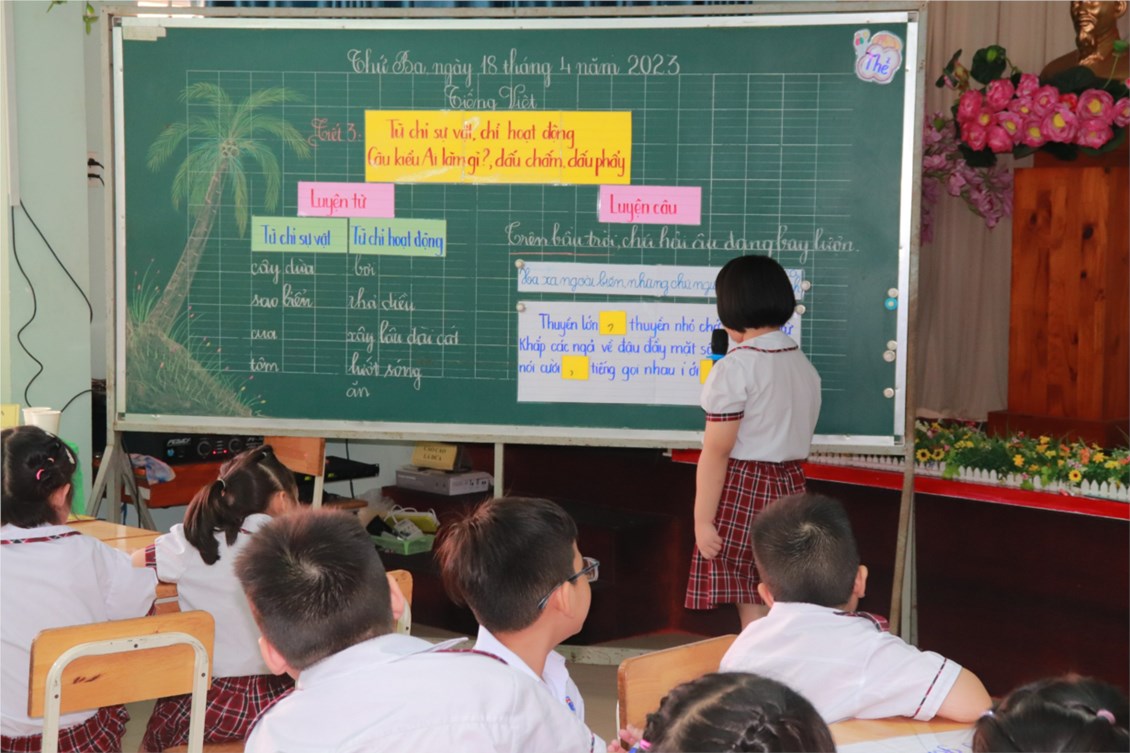 Thứ Ba, ngày 18 tháng 4 năm 2023
Thể
Tiếng Việt
Tiết 3:
Từ chỉ sự vật, chỉ hoạt động
Câu kiểu Ai làm gì?, dấu chấm, dấu phẩy
Luyện từ
Luyện câu
Từ chỉ sự vật
Từ chỉ hoạt động
cây dừa
bơi
sao biển
thả diều
cua
xây lâu đài cát
tôm
lướt sóng
ăn
Trên bầu trời, chú hải âu đang bay lượn.
Xa xa ngoài biển, những chú
Thuyền lớn , thuyền nhỏ
Khắp các ngả về đâu đầy mặt
nói cười , tiếng gọi nhau í ới